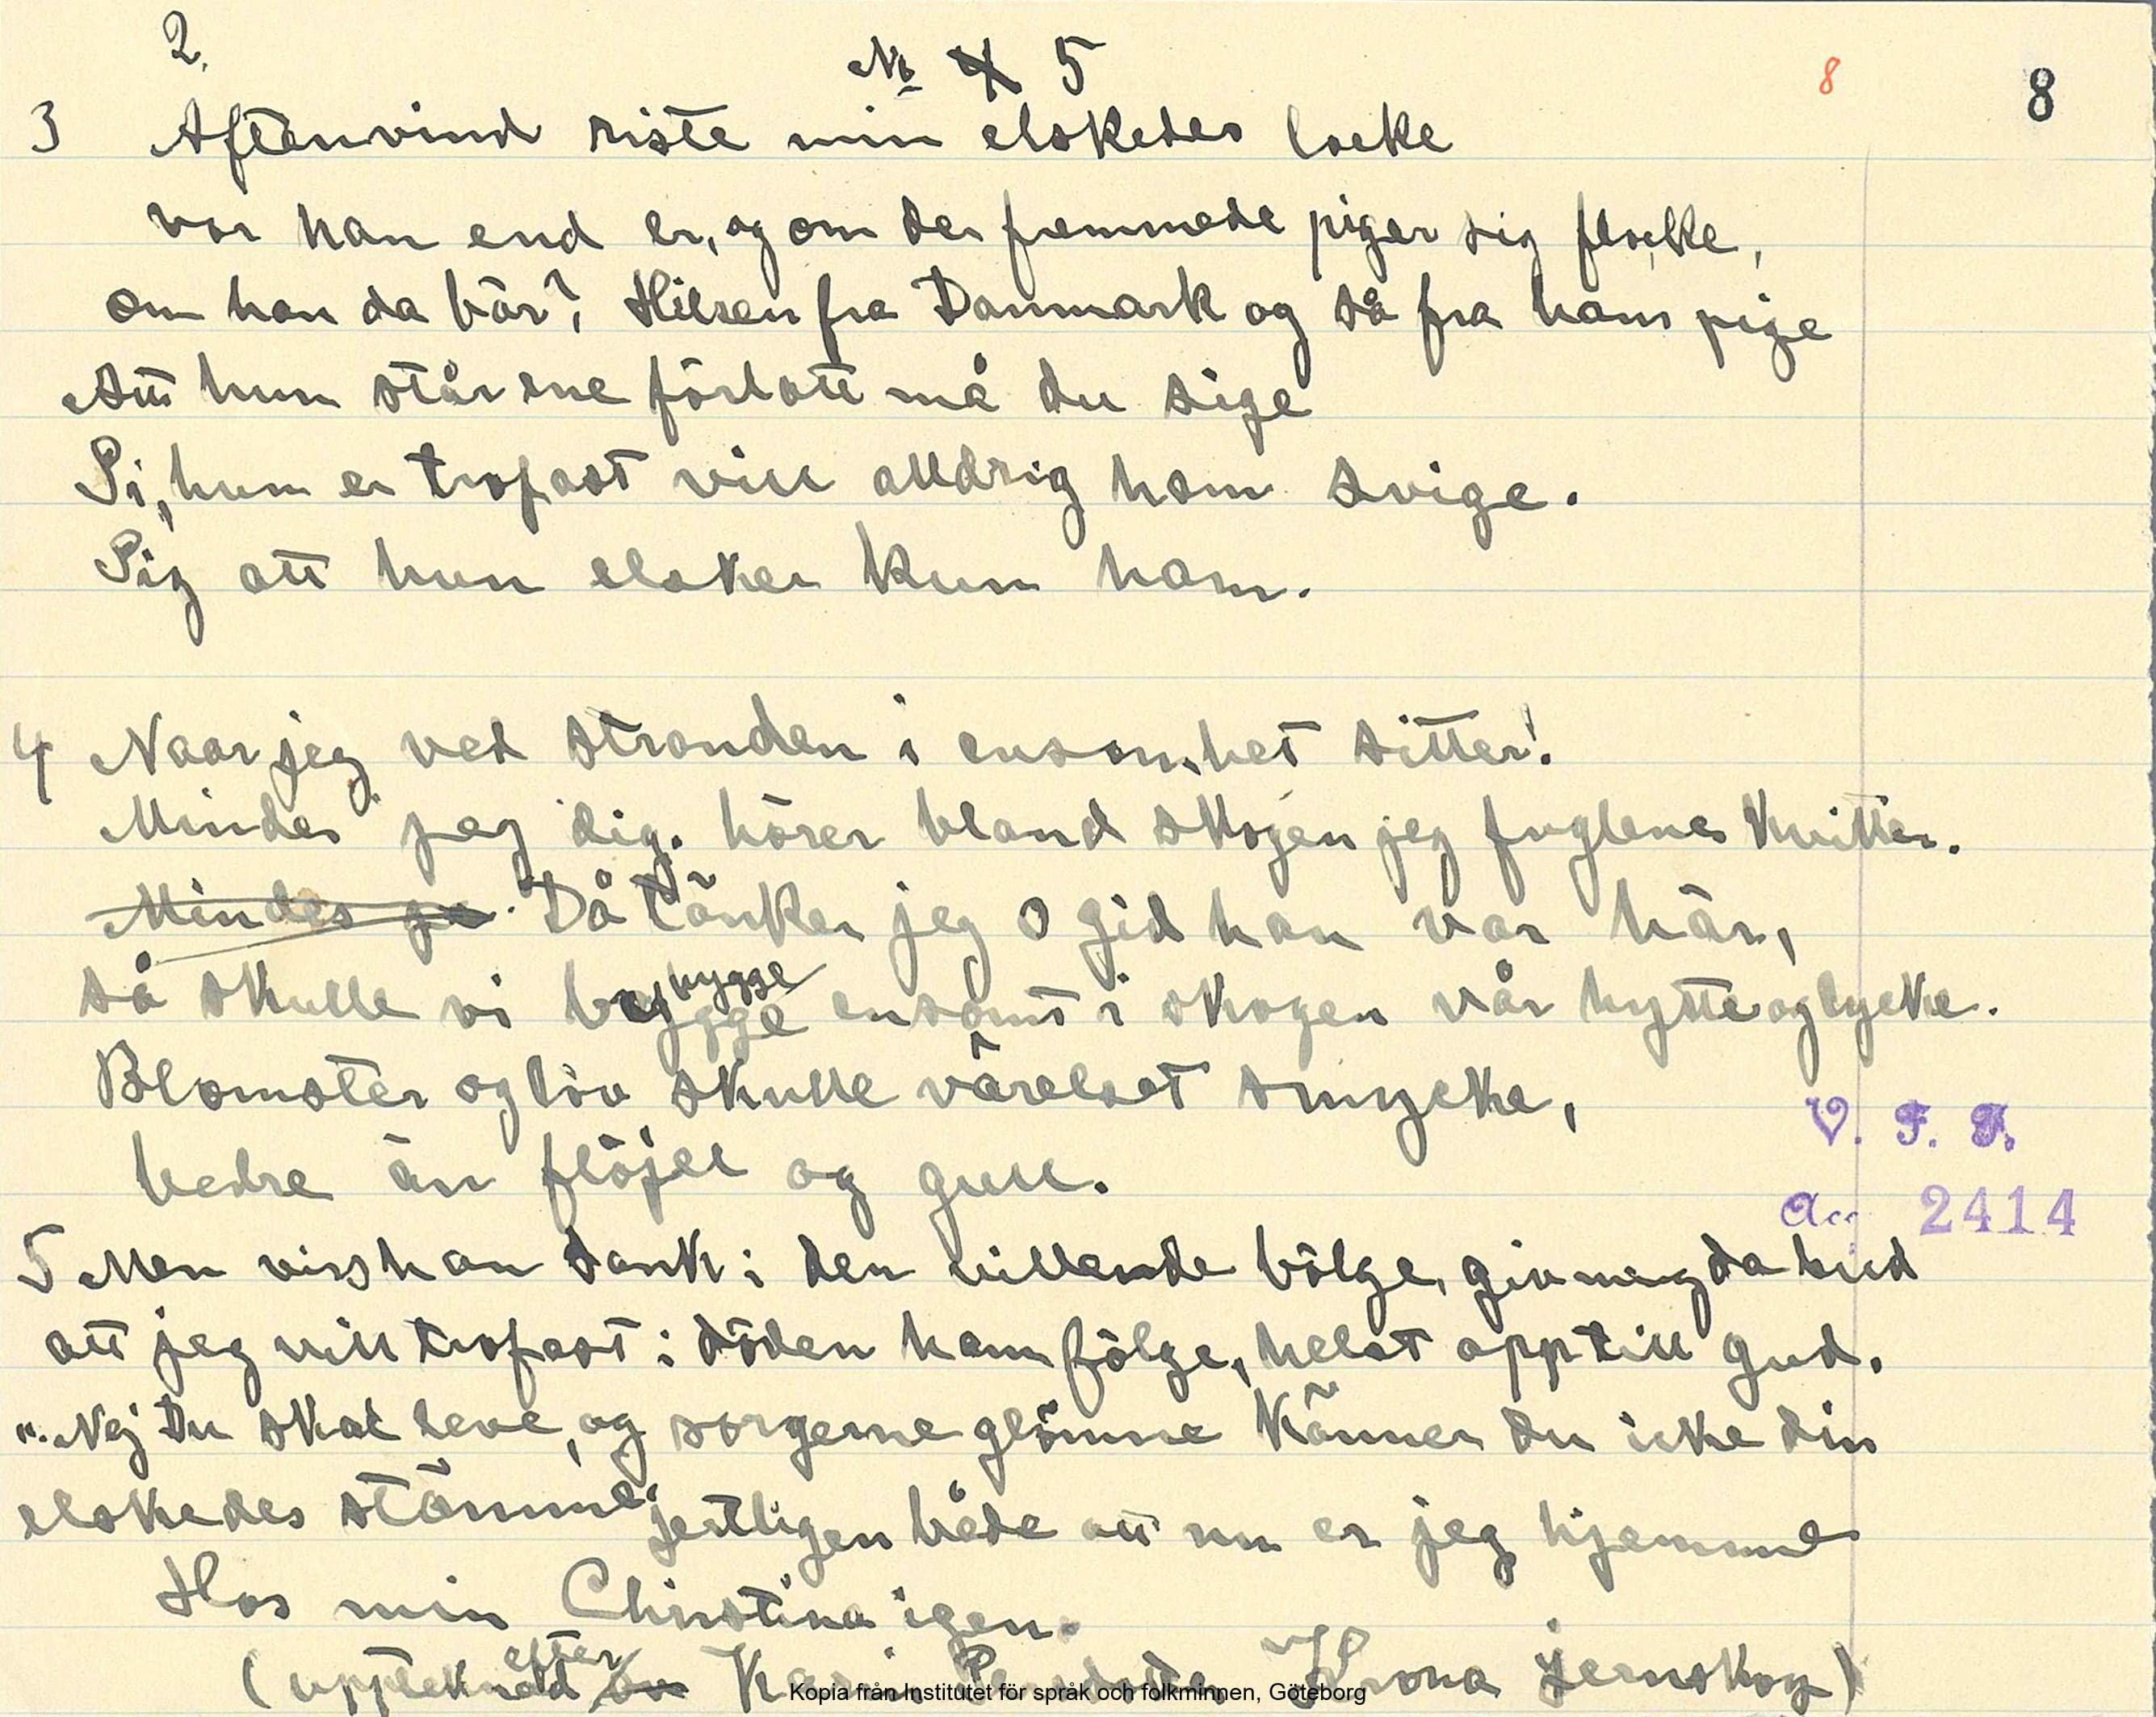 2.
No 4 5
8
8
3 Aftenvind riste min elskedes locke
var han end er, og om de fremmede piger sig flocke,
om han da bär? Hilsen fra Danmark og så fra hans pige
Att hun står ene förlatt må du sige
Si, hun er trofast vill alldrig ham svige.
Sig att hun elsker kun ham.
4 Naar jeg ved stranden i ensomhet sitter!
Mindes jeg dig. hörer bland skogen jeg fuglenes kvitter.
Mindes je Då tänker jeg o gid han var här,
så skulle vi bygge bygge ensamt i skogen vår hytte og lycke.
Blomster og löv skulle värelset smycke,
bedre än flöjel og gull.
V. F. F.
Acc 2414
5 Men viss han sank i den villende bölge, giv mig da bud
att jeg vill trofast i döden ham fölge, helst opp till gud.
"Nej Du skal leve, og sorgerne glömme Känner du icke din
elskedes stämme, jertligen både att nu er jeg hjemme
Hos min Christina igen.
(upptecknad efter av Karin Krona Jernskog)
Kopia från Institutet för språk och folkminnen, Göteborg